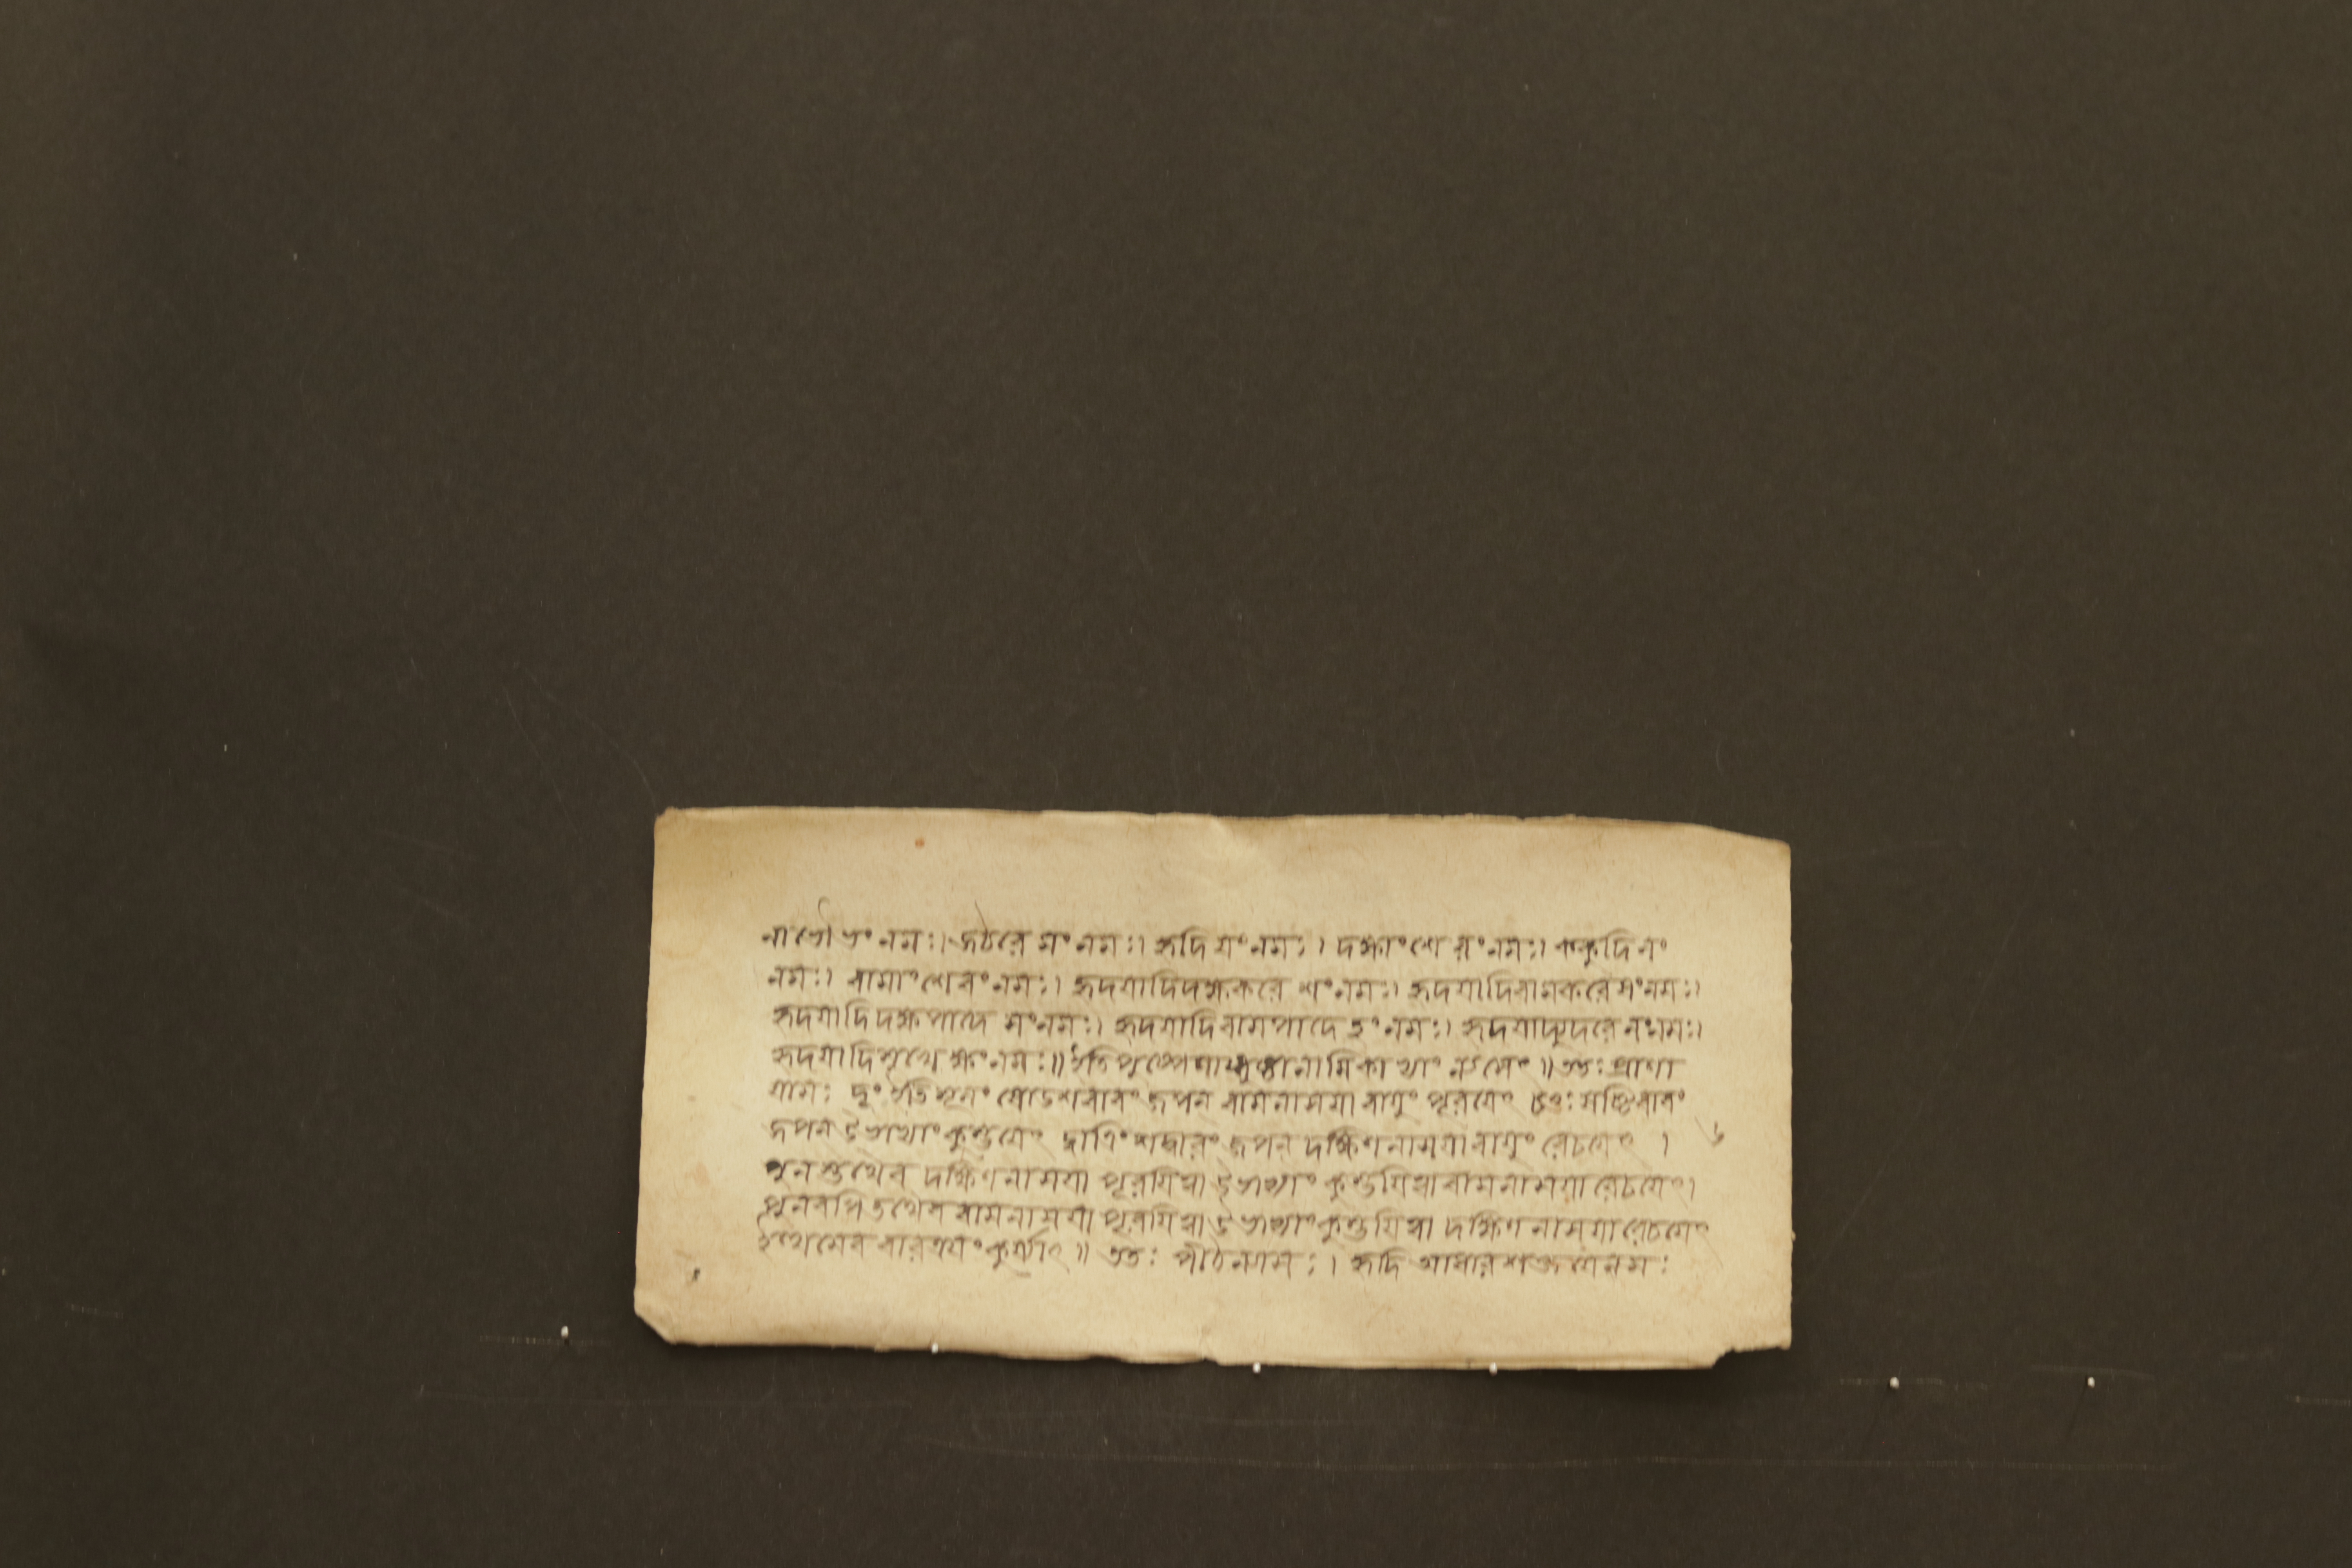 নাভৌ ভং নমঃ। জঠরে মং নমঃ। হৃদি যং নমঃ। দক্ষাংশে রং নমঃ। ককুদি লং
নমঃ। বামাংশে বং নমঃ। হৃদয়াদিদক্ষকরে শং নমঃ। হৃদয়াদিবামকরে ষং নমঃ।
হৃদয়াদিদক্ষপাদে সং নমঃ। হৃদয়াদিবামপাদে হং নমঃ। হৃদয়াদ্যুদরে লং নমঃ।
হৃদয়াদিমুখে ক্ষং নমঃ॥ ইতি পুষ্পেণাঙ্গুষ্ঠানামিকাভ্যাং ন্যসেৎ॥ ততঃ প্রাণা
য়ামঃ দূং ইতি মূলং ষোডশবারং জপন বামনাসয়া বায়ুং পূরয়েৎ চতুঃষষ্ঠিবারং
জপন উভাভ্যাং কুম্ভয়েৎ দ্বাত্রিংশদ্বারং জপন দক্ষিণনাসয়া বায়ুং রেচয়েৎ ।
৬
পুনস্তথৈব দক্ষিণনাসয়া পূরয়িত্বা উভাভ্যাং কুম্ভয়িত্বা বামনাসয়া রেচয়েৎ।
পুনরপি তথৈব বামনাসয়া পূরয়িত্বা উভাভ্যাং কুম্ভয়িত্বা দক্ষিণনাসয়া রেচয়েৎ
ইত্থমেব বারত্রয়ং কুর্য্যাৎ॥ ততঃ পীঠন্যাসঃ। হৃদি আধারশক্তয়ে নমঃ